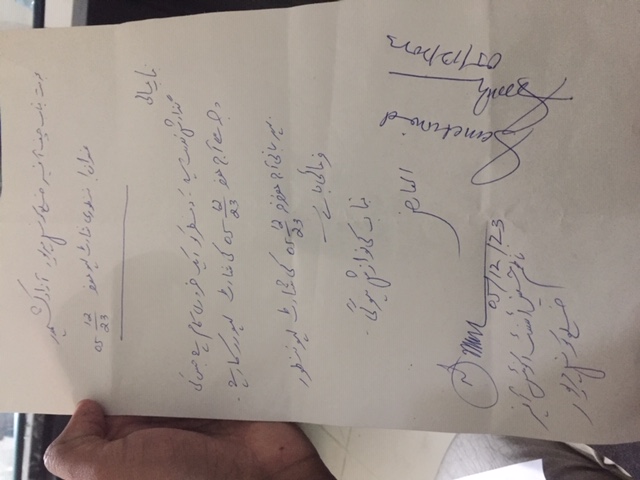 خدمت جناب چیف آفیسر ضلع کونسل میرپور آزاد کشمیر
عنوان! منظوری شارٹ لیو مورخہ 05 12/23
جناب عالی
گذارش خدمت ہے کہ مسٹر کو ایک ضروری کام ہے جس کی
وجہ سے آج مورخہ 05 12/23 کی شارٹ لیو درکار ہے۔
مہربانی آج مورخہ 05 12/23 کی شارٹ لیو منظور
فرمائی جائے
جناب کی نوازش ہوگی۔
العارض
05/12/23
ناظم حسین اسسٹنٹ اکاؤنٹس آفیسر
ضلع کونسل میرپور
Sanctioned
05/12/2023